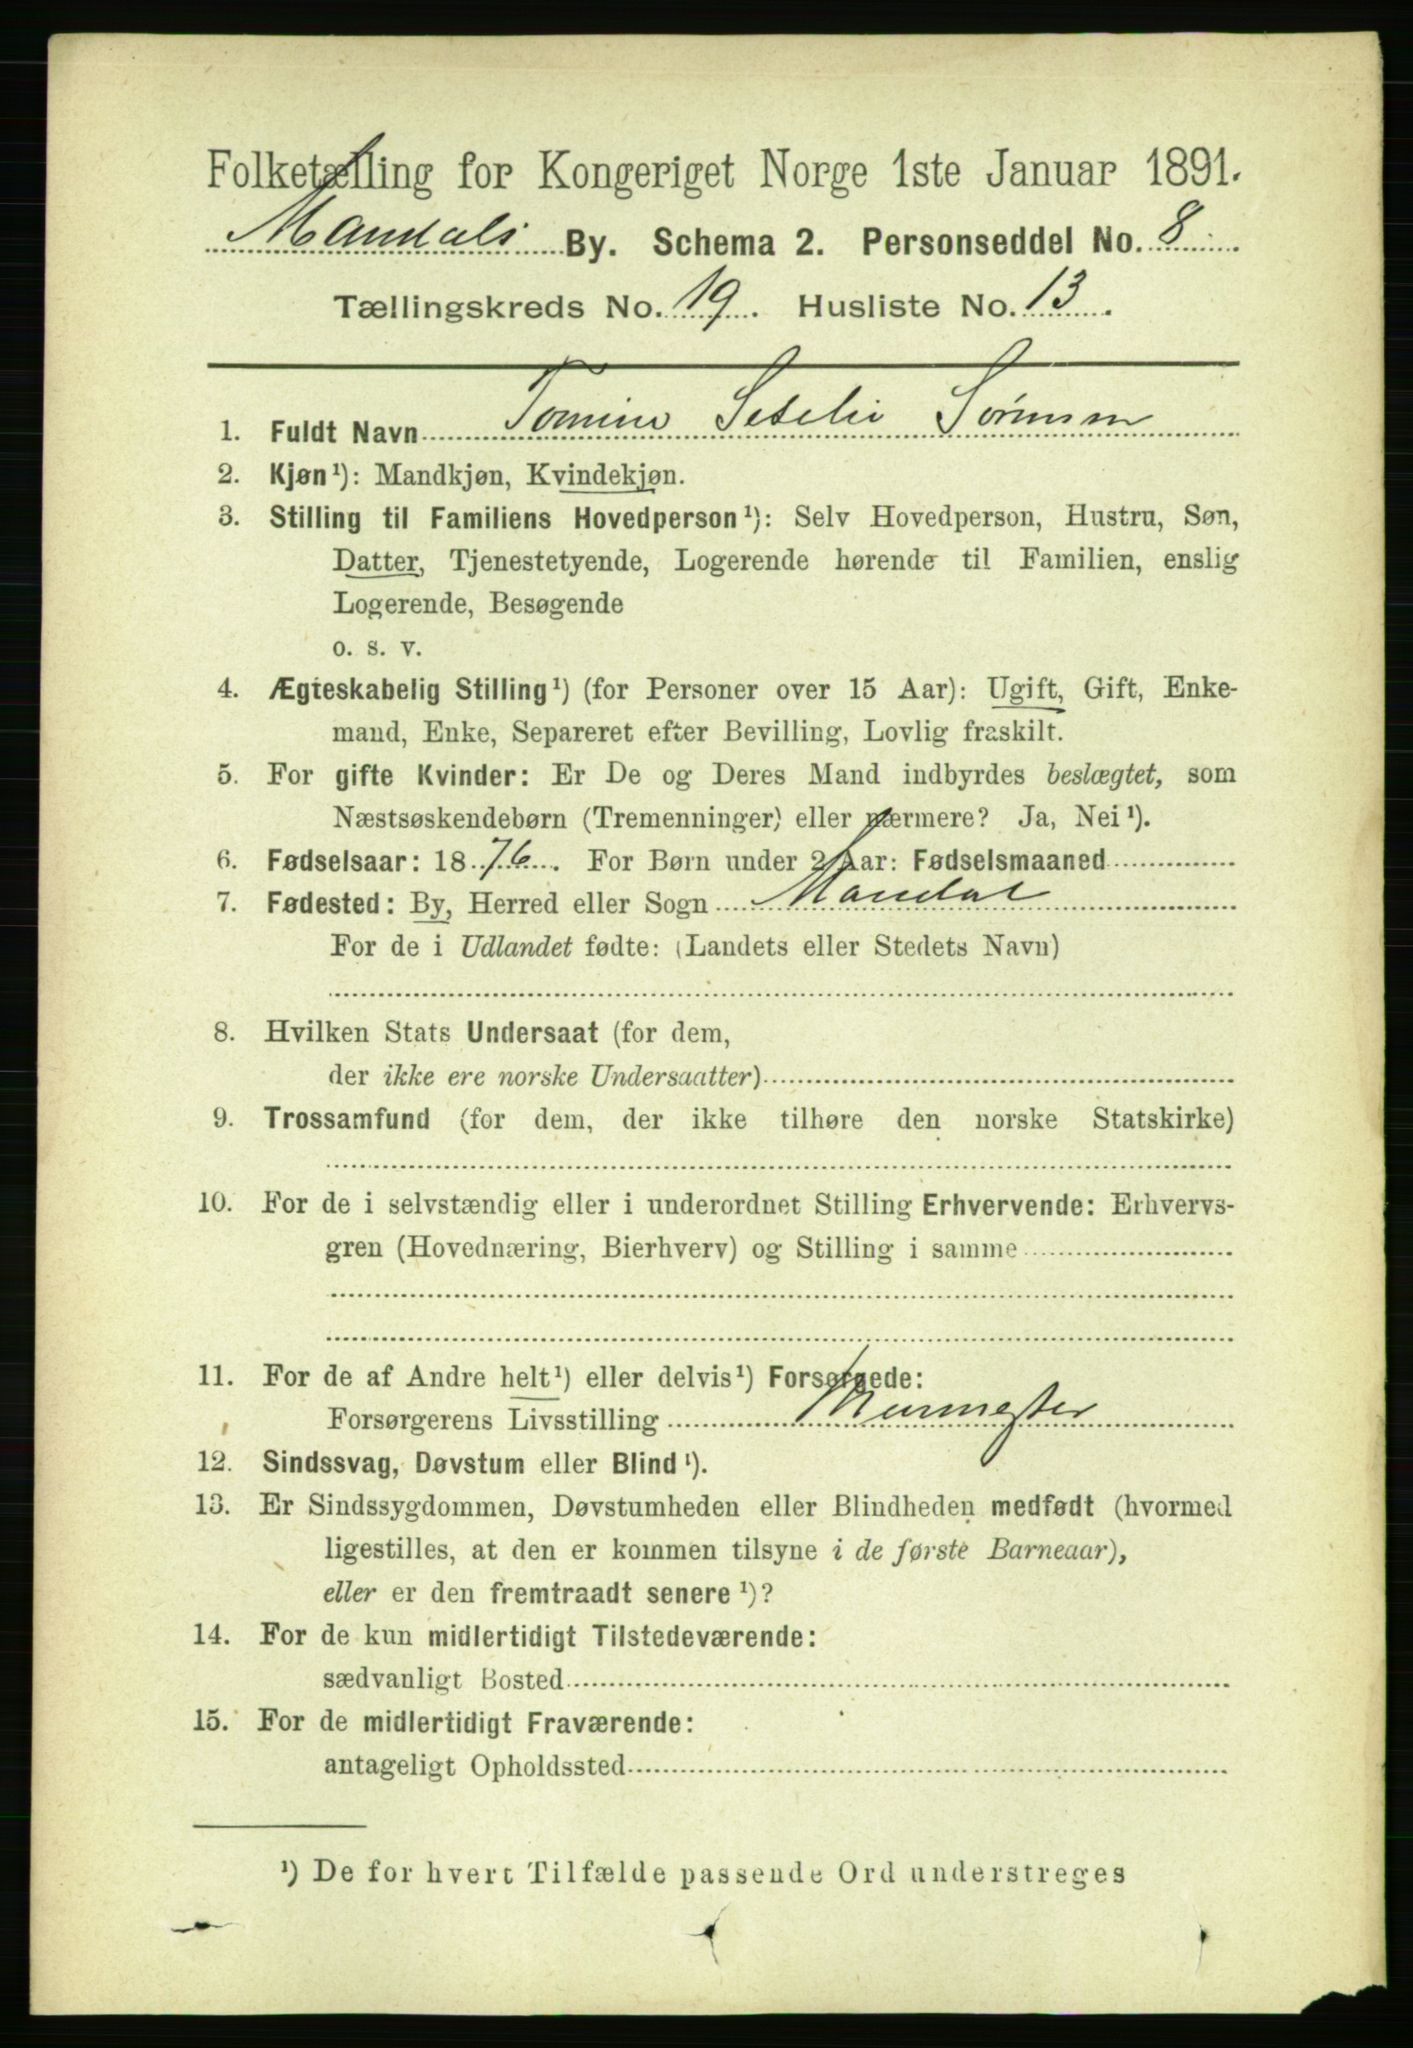 Folketælling for Kongeriget Norge 1ste Januar 1891.
Mandals By. Schema 2. Personseddel No. 8
Tællingskreds No. 19. Husliste No. 13.
1. Fuldt Navn Tomine Setelie Sørensen
2. Kjøn¹): Mandkjøn, Kvindekjøn.
3. Stilling til Familiens Hovedperson¹): Selv Hovedperson, Hustru, Søn,
Datter, Tjenestetyende, Logerende hørende til Familien, enslig
Logerende, Besøgende
o. s. v.
4. Ægteskabelig Stilling¹) (for Personer over 15 Aar): Ugift, Gift, Enke-
mand, Enke, Separeret efter Bevilling, Lovlig fraskilt.
5. For gifte Kvinder: Er De og Deres Mand indbyrdes beslægtet, som
Næstsøskendebørn (Tremenninger) eller nærmere? Ja, Nei¹).
6. Fødselsaar: 1876. For Børn under 2 Aar: Fødselsmaaned
7. Fødested: By, Herred eller Sogn Mandal
For de i Udlandet fødte: (Landets eller Stedets Navn)
8. Hvilken Stats Undersaat (for dem,
der ikke ere norske Undersaatter)
9. Trossamfund (for dem, der ikke tilhøre den norske Statskirke)
10. For de i selvstændig eller i underordnet Stilling Erhvervende: Erhvervs-
gren (Hovednæring, Bierhverv) og Stilling i samme
11. For de af Andre helt¹) eller delvis¹) Forsørgede:
Forsørgerens Livsstilling Murmester
12. Sindssvag, Døvstum eller Blind¹).
13. Er Sindssygdommen, Døvstumheden eller Blindheden medfødt (hvormed
ligestilles, at den er kommen tilsyne i de første Barneaar),
eller er den fremtraadt senere¹)?
14. For de kun midlertidigt Tilstedeværende:
sædvanligt Bosted
15. For de midlertidigt Fraværende:
antageligt Opholdssted
¹) De for hvert Tilfælde passende Ord understreges